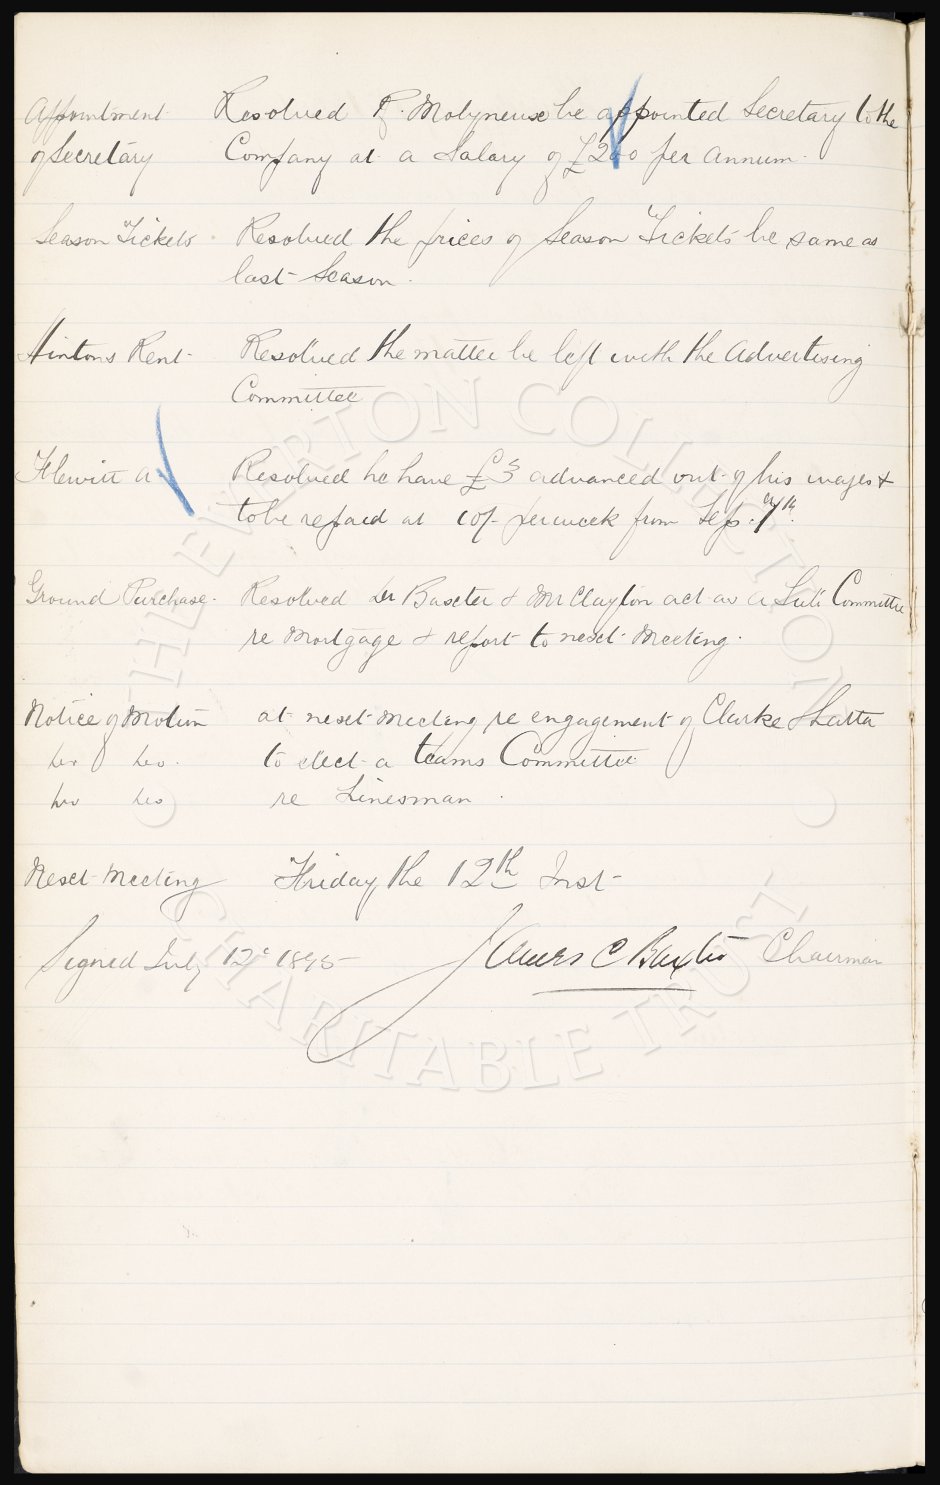 Appointment Resolved R. Molyneux be appointed Secretary to the
of Secretary Company at a Salary of £260 per annum.
Season Tickets Resolved the prices of Season Tickets be same as
last Season.
Hintons Rent Resolved the matter be left with the Advertising
Committee
Flewitt A Resolved he have £3 advanced out of his wages &
to be repaid at 10/- per week from Sep. 7th.
Ground Purchase. Resolved Dr Baxter & Mr Clayton act as a Sub Committee
re Mortgage & report to next Meeting.
Notice of Motion at next meeting re engagement of Clarke & Latta
do do. to elect a teams Committee
do do re Linesman.
Next Meeting Friday the 12th Inst
Signed July 12th 1895 James C Baxter Chairman
THE EVERTON COLLECTION
CHARITABLE TRUST